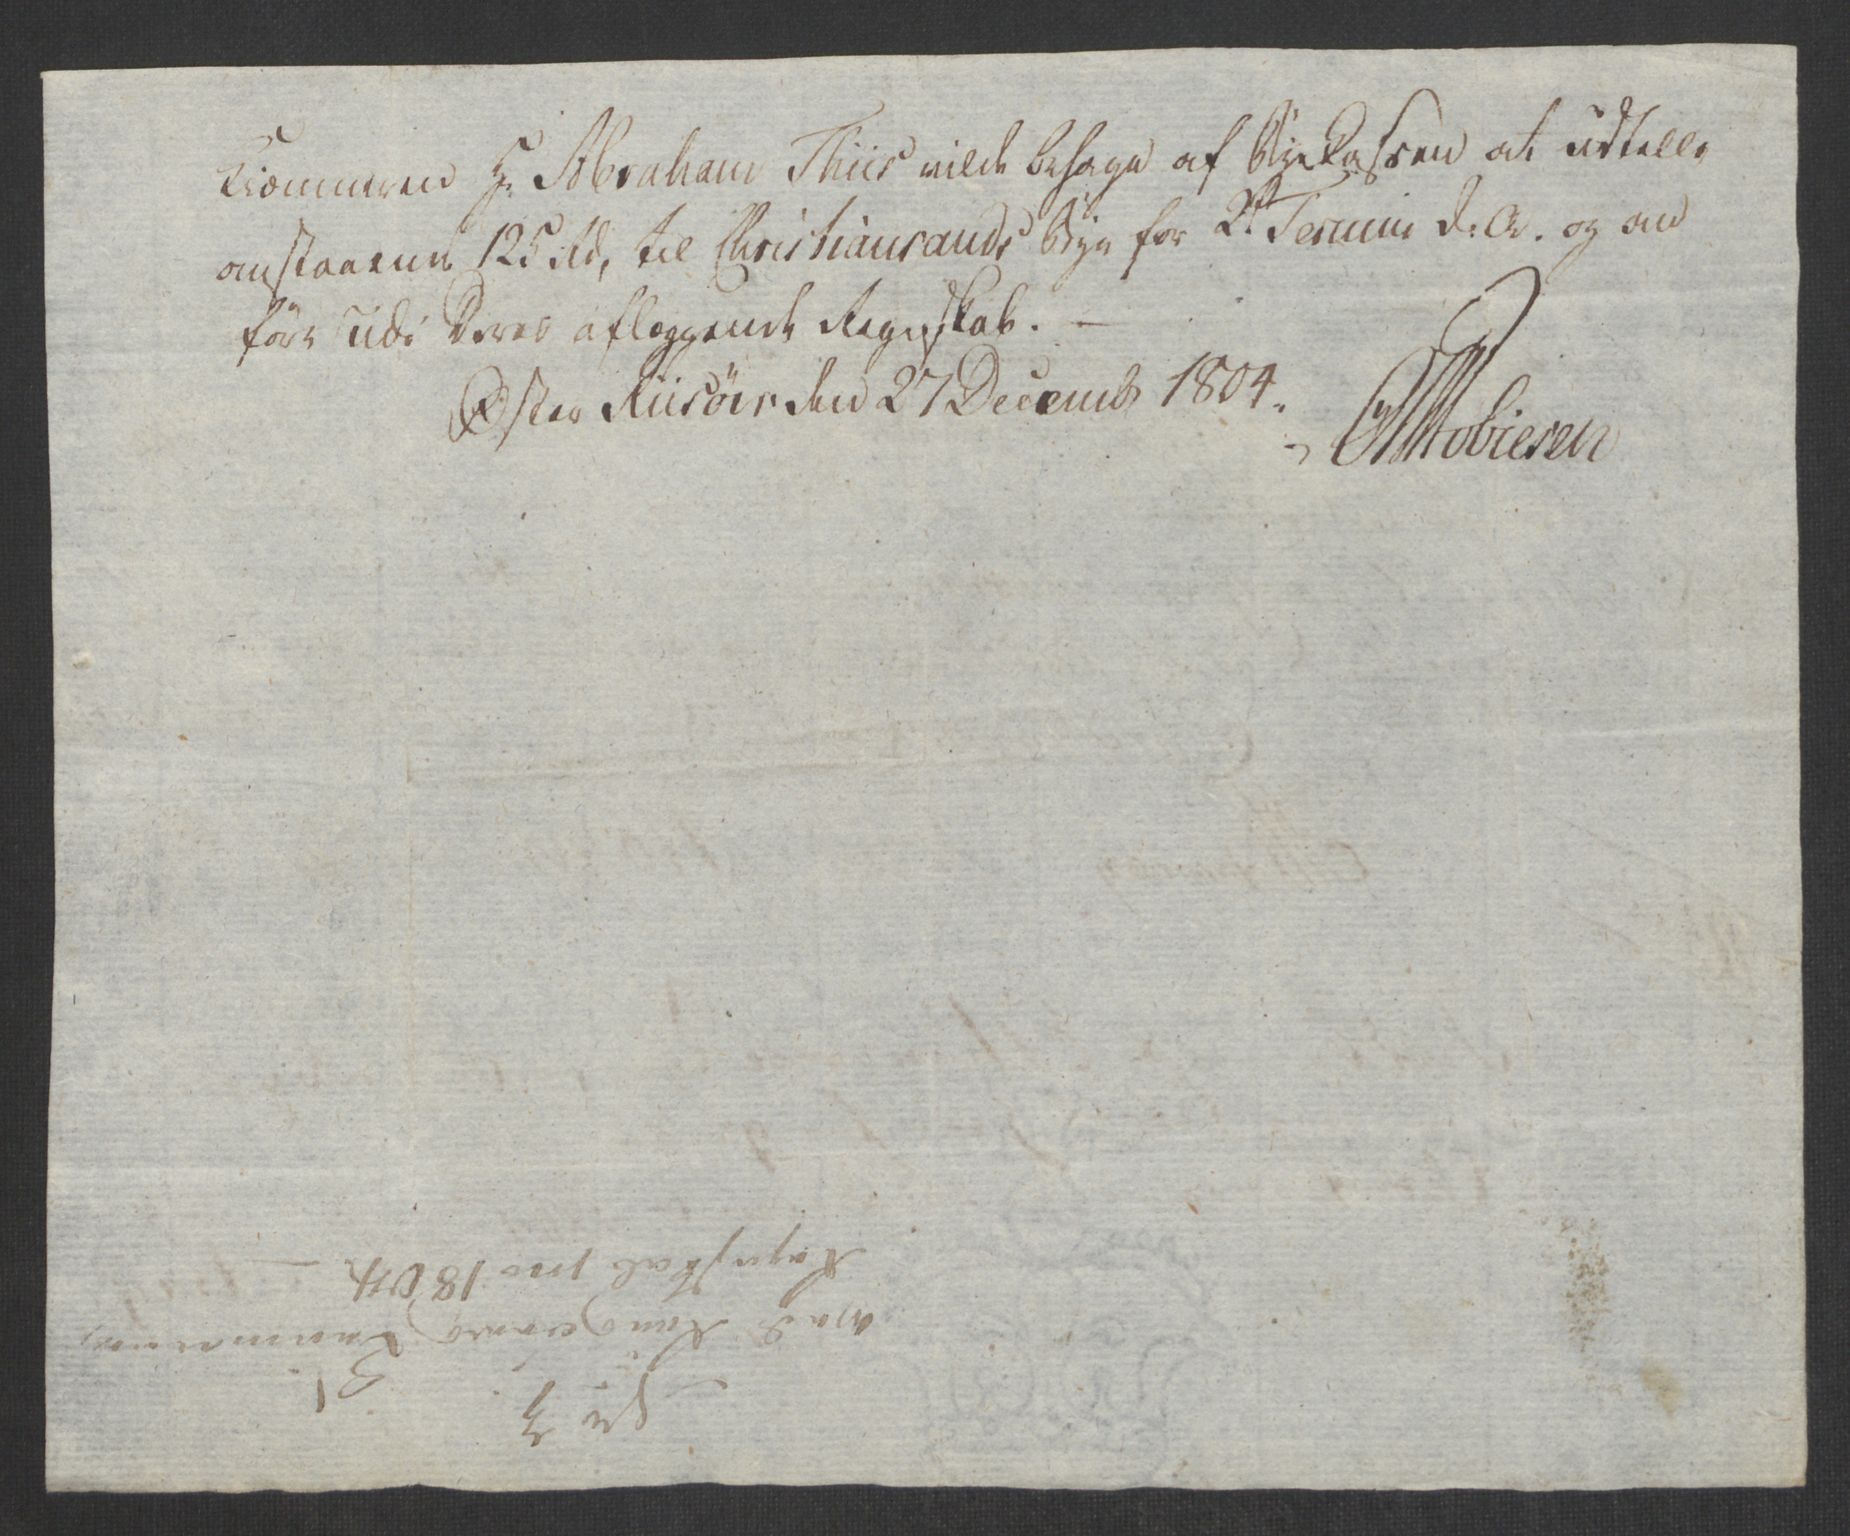 Kiæmneren Hr Abraham Thiis vilde behage af Byekassen at udtelle
anstaaende 125 Rd, til Christiansands Bye for 2d Termin d: A. og an
före udi Deres aflæggende Regnskab. —
Öster Riisöer den 27 Decemb 1804.
Tobiesen
No 3
Regnskab pro 1804